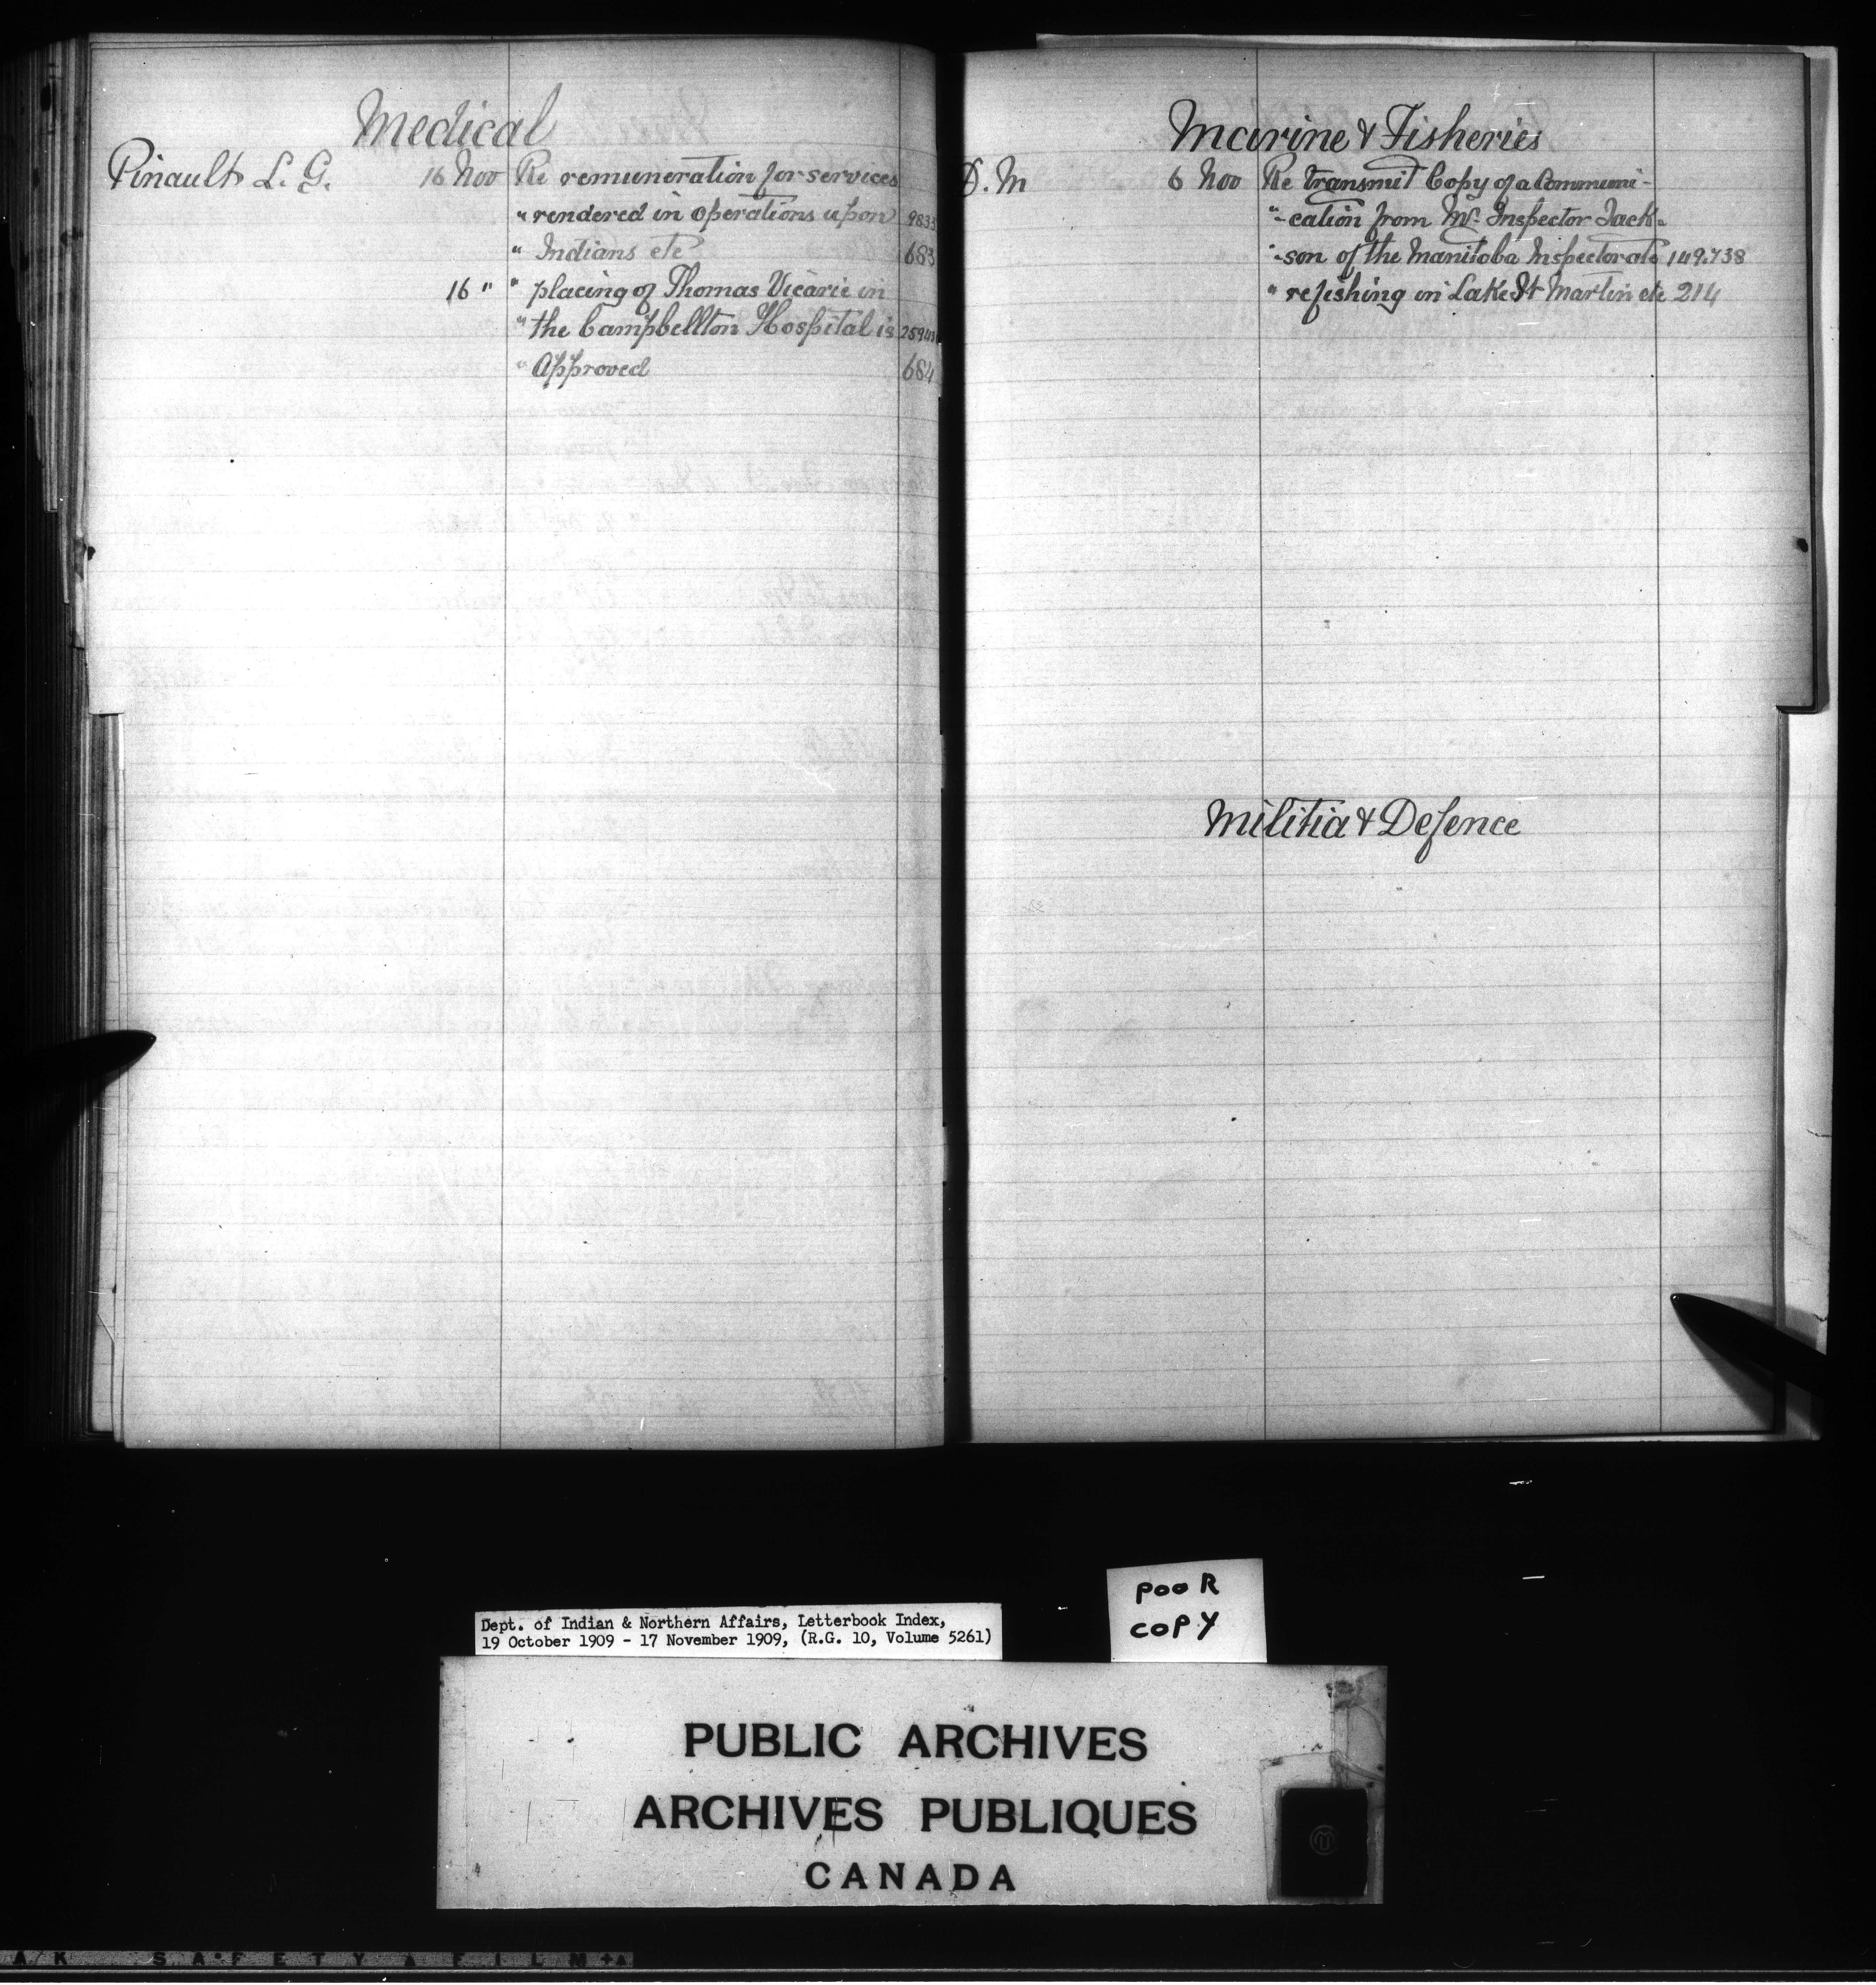 Medical
Pinault L. G. 16 Nov Re remuneration for services
" rendered in operations upon 9833
" Indians etc 683
16 " " placing of Thomas Vicaire in
" the Campbellton Hospital is
" Approved 684
Marine & Fisheries
D. M 6 Nov Re transmit Copy of a Communi-
"-cation from Mr. Inspector Jack-
"-son of the Manitoba Inspectorate 149.738
" re fishing in Lake St Martin etc 214
Militia & Defence
Dept. of Indian & Northern Affairs, Letterbook Index,
19 October 1909 - 17 November 1909, (R.G. 10, Volume 5261)
POOR
COPY
PUBLIC ARCHIVES
ARCHIVES PUBLIQUES
CANADA
SAFETY FILM